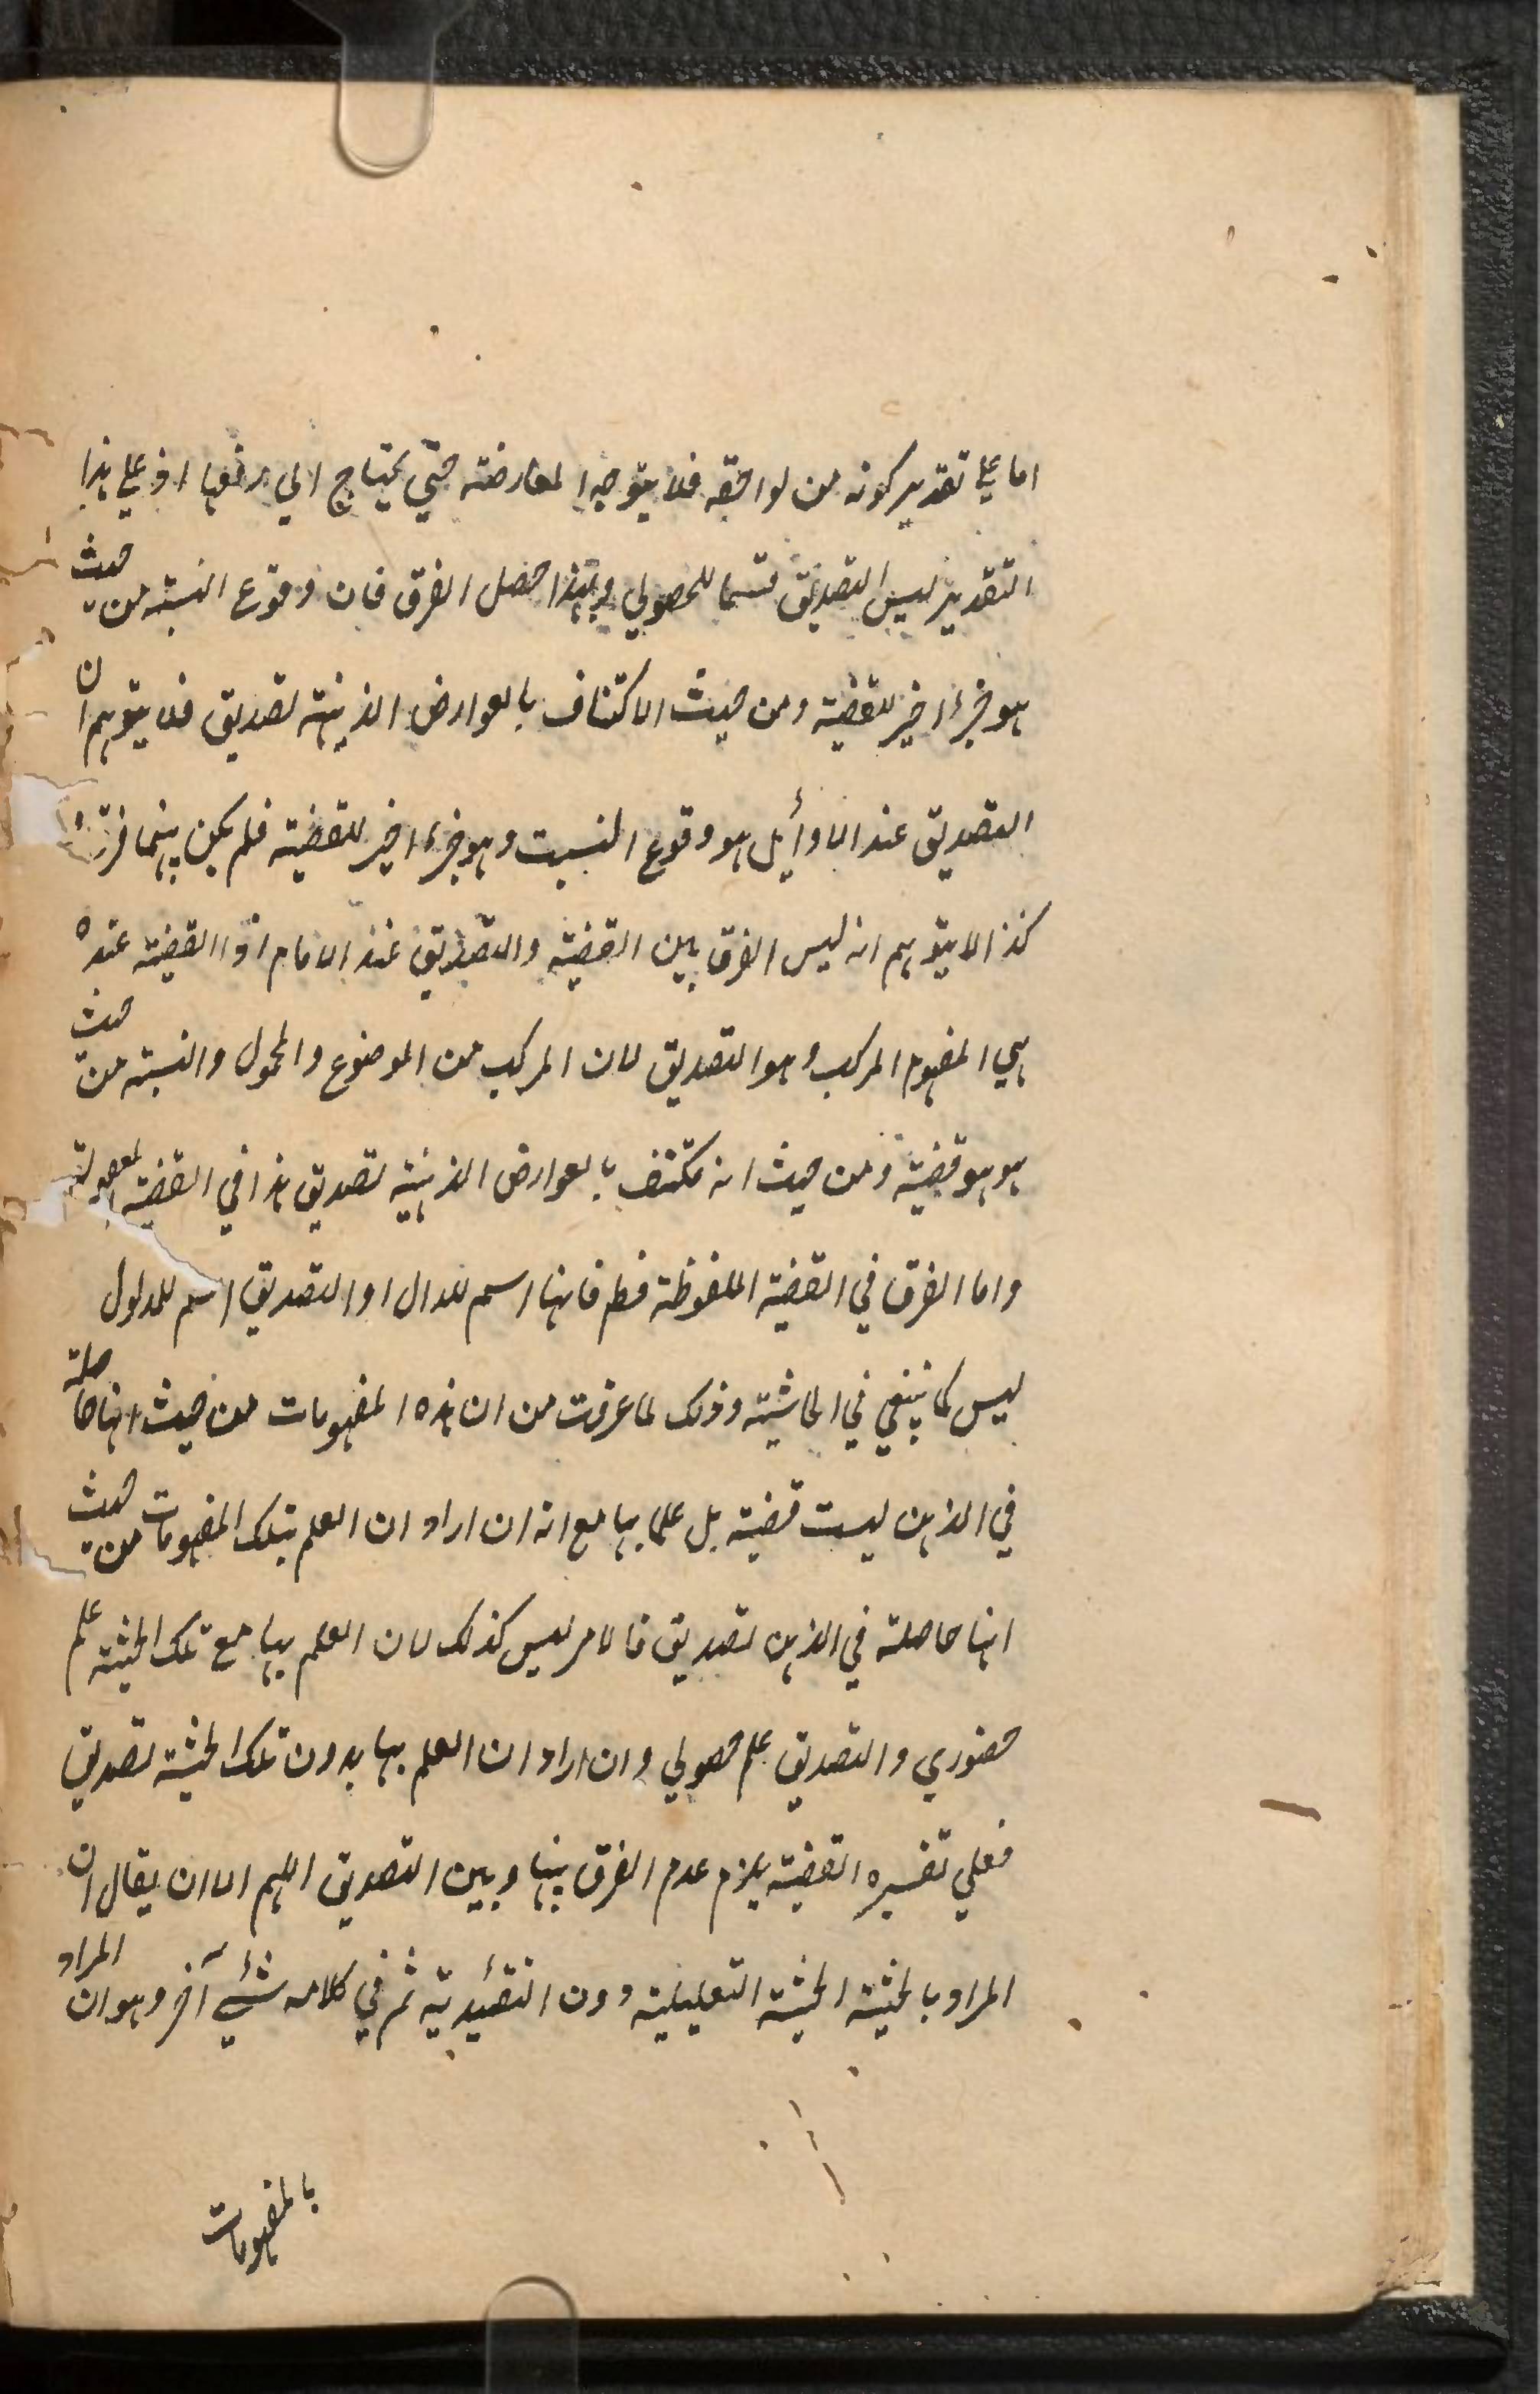 اما على تقدير كونه من لواحقه فلا يتوجه المعارضته حتي يحتاج الي رفعها اذ علي هذا
التقدير ليس التصديق قسما للحصولي وبهذا حصل الفرق فان وقوع النسبته من حيث
هو جزء اخير للقضية ومن حيث الاكتناف بالعوارض الذهنية تصديق فلا يتوهم ان
التصديق عند الاوأيل هو وقوع النسبت وهو جزء اخير للقضية فلم يكن بينهما فرق
كذا لا يتوهم انه ليس الفرق بين القضية والتصديق عند الامام اذ القضية عنده
هي المفهوم المركب وهو التصديق لان المركب من الموضوع والمحمول والنسبته من حيث
هو هو قضية ومن حيث انه مكتنف بالعوارض الذهنية تصديق هذا في القضية المعقولة
واما الفرق في القضية الملفوظة فظ فانها اسم للدال او التصديق اسم للمدلول
ليس كما ينبغي في الحاشية وذلك لما عرفت من ان هذه المفهومات من حيث انها حاصلة
في الذهن ليست قضية بل علما بها مع انه ان اراد ان العلم بتلك المفهومات من حيث
انها حاصلة في الذهن تصديق فالامر ليس كذلك لان العلم بها مع تلك الحيثية علم
حضوري والتصديق علم حصولي وان اراد ان العلم بها بدون تلك الحيثية تصديق
فعلي تفسيره القضية يلزم عدم الفرق بينها وبين التصديق اللهم الا ان يقال ان
المراد بالحيثية الحيثية التعليلية دون التقئيدية ثم في كلامه شئي آخر وهو ان المراد
بالمفهومات